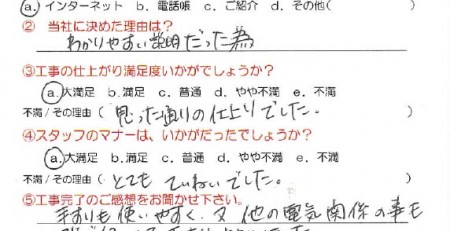 a. インターネット b. 電話帳 c. ご紹介 d. その他(
② 当社に決めた理由は?
わかりやすい説明だった為
③工事の仕上がり満足度いかがでしょうか?
a.大満足 b.満足 c. 普通 d. やや不満 e. 不満
不満/その理由( 思った通りの仕上りでした。
④スタッフのマナーは、いかがだったでしょうか?
a.大満足 b.満足 c. 普通 d. やや不満 e. 不満
不満/その理由( とても ていねいでした。
⑤工事完了のご感想をお聞かせ下さい。
手すりも使いやすく、又 他の電気関係の事も